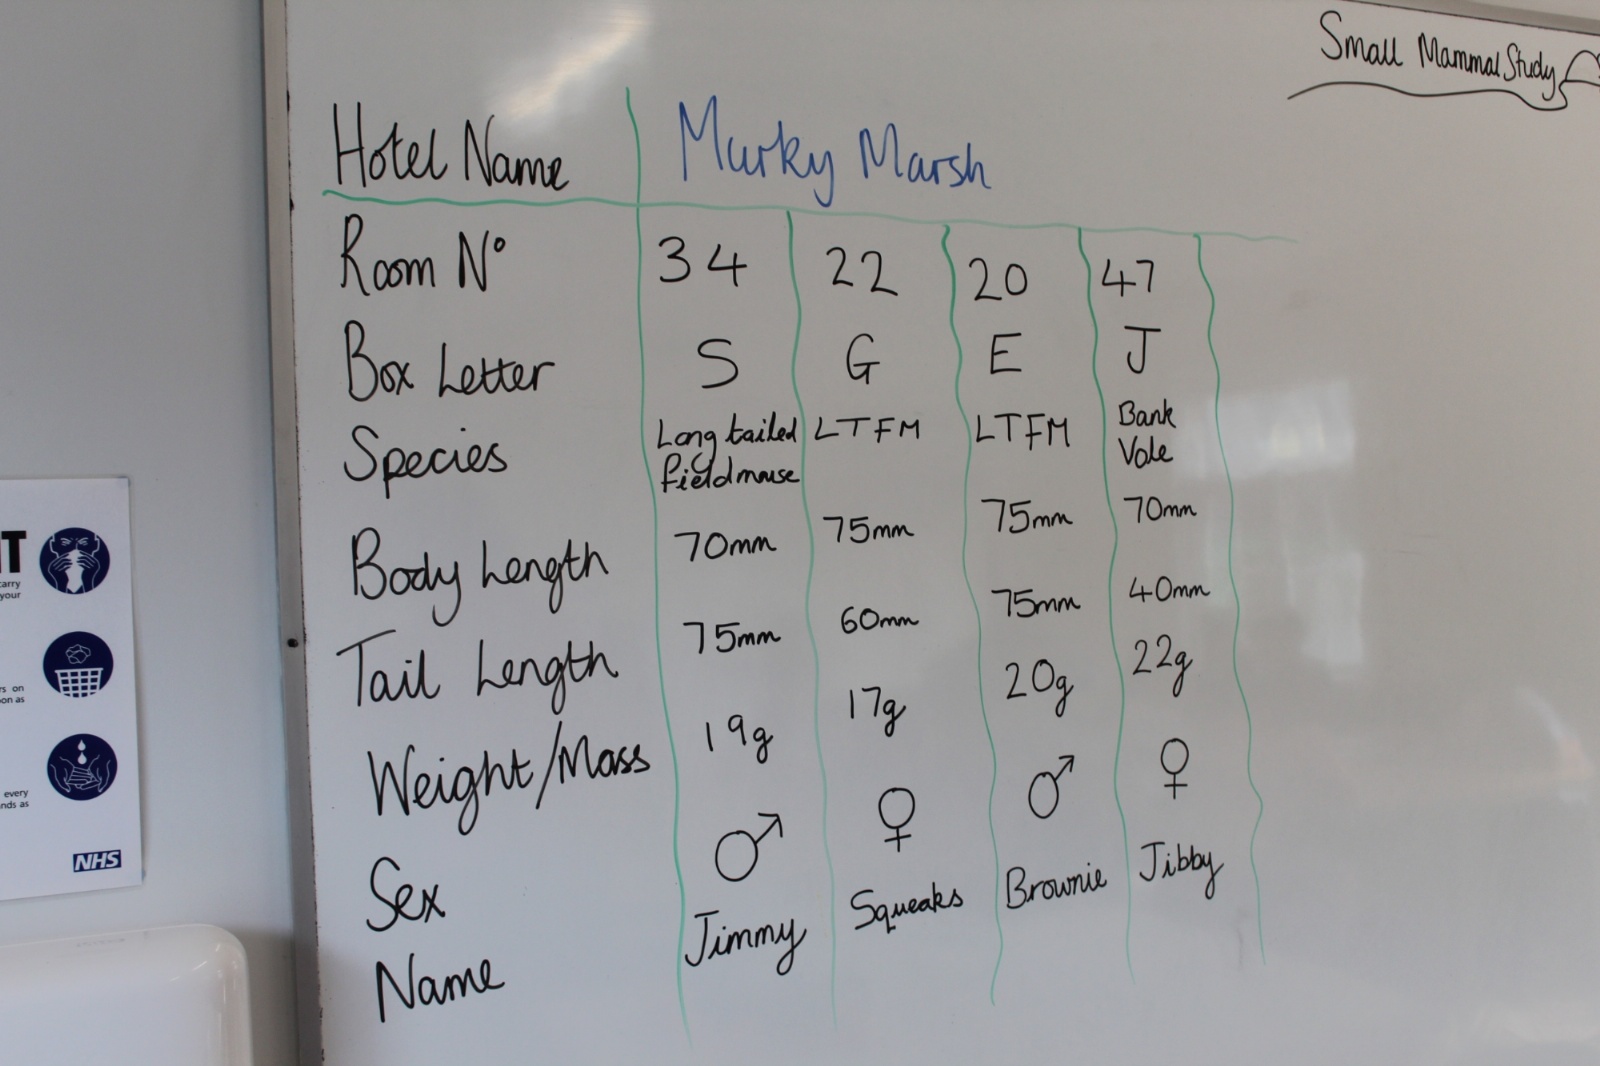 Small Mammal Study
Hotel Name Murky Marsh
Room Nº 34 22 20 47
Box Letter S G E J
Species Long tailed fieldmouse LTFM LTFM Bank Vole
Body Length 70mm 75mm 75mm 70mm
Tail Length 75mm 60mm 75mm 40mm
Weight/Mass 19g 17g 20g 22g
Sex ♂ ♀ ♂ ♀
Name Jimmy Squeaks Brownie Jibby
IT
carry
your
rs on
on as
every
nds as
NHS